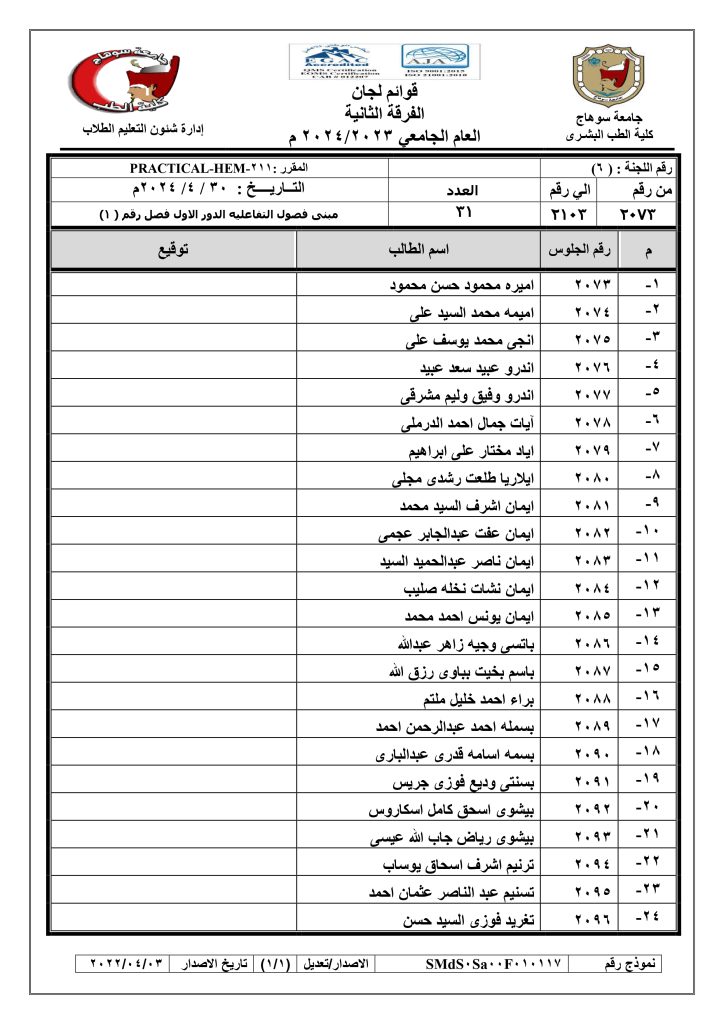 جامعة سوهاج
كلية الطب
إدارة شئون التعليم الطلاب
EGAC
Accredited
QMS Certification
EOMS Certification
CAB # 012207
AJA
ISO 9001:2015
ISO 21001:2018
جامعة سوهاج
كلية الطب البشرى
قوائم لجان
الفرقة الثانية
العام الجامعي ٢٠٢٤/٢٠٢٣ م
رقم اللجنة : ( ٦ ) المقرر : PRACTICAL-HEM-٢١١
من رقم الي رقم العدد التــاريــــخ : ٣٠ / ٤/ ٢٠٢٤م
٢٠٧٣ ٢١٠٣ ٣١ مبنى فصول التفاعليه الدور الاول فصل رقم ( ١ )
م رقم الجلوس اسم الطالب توقيع
١- ٢٠٧٣ اميره محمود حسن محمود
٢- ٢٠٧٤ اميمه محمد السيد على
٣- ٢٠٧٥ انجى محمد يوسف على
٤- ٢٠٧٦ اندرو عبيد سعد عبيد
٥- ٢٠٧٧ اندرو وفيق وليم مشرقى
٦- ٢٠٧٨ آيات جمال احمد الدرملي
٧- ٢٠٧٩ اياد مختار على ابراهيم
٨- ٢٠٨٠ ايلاريا طلعت رشدى مجلى
٩- ٢٠٨١ ايمان اشرف السيد محمد
١٠- ٢٠٨٢ ايمان عفت عبدالجابر عجمى
١١- ٢٠٨٣ ايمان ناصر عبدالحميد السيد
١٢- ٢٠٨٤ ايمان نشات نخله صليب
١٣- ٢٠٨٥ ايمان يونس احمد محمد
١٤- ٢٠٨٦ باتسى وجيه زاهر عبدالله
١٥- ٢٠٨٧ باسم بخيت بباوى رزق الله
١٦- ٢٠٨٨ براء احمد خليل ملتم
١٧- ٢٠٨٩ بسمله احمد عبدالرحمن احمد
١٨- ٢٠٩٠ بسمه اسامه قدرى عبدالبارى
١٩- ٢٠٩١ بسنتى وديع فوزى جريس
٢٠- ٢٠٩٢ بيشوى اسحق كامل اسكاروس
٢١- ٢٠٩٣ بيشوى رياض جاب الله عيسى
٢٢- ٢٠٩٤ ترنيم اشرف اسحاق يوساب
٢٣- ٢٠٩٥ تسنيم عبد الناصر عثمان احمد
٢٤- ٢٠٩٦ تغريد فوزى السيد حسن
نموذج رقم SMdS٠Sa٠٠F٠١٠١١٧ الاصدار/تعديل (١/١) تاريخ الاصدار ٢٠٢٢/٠٤/٠٣